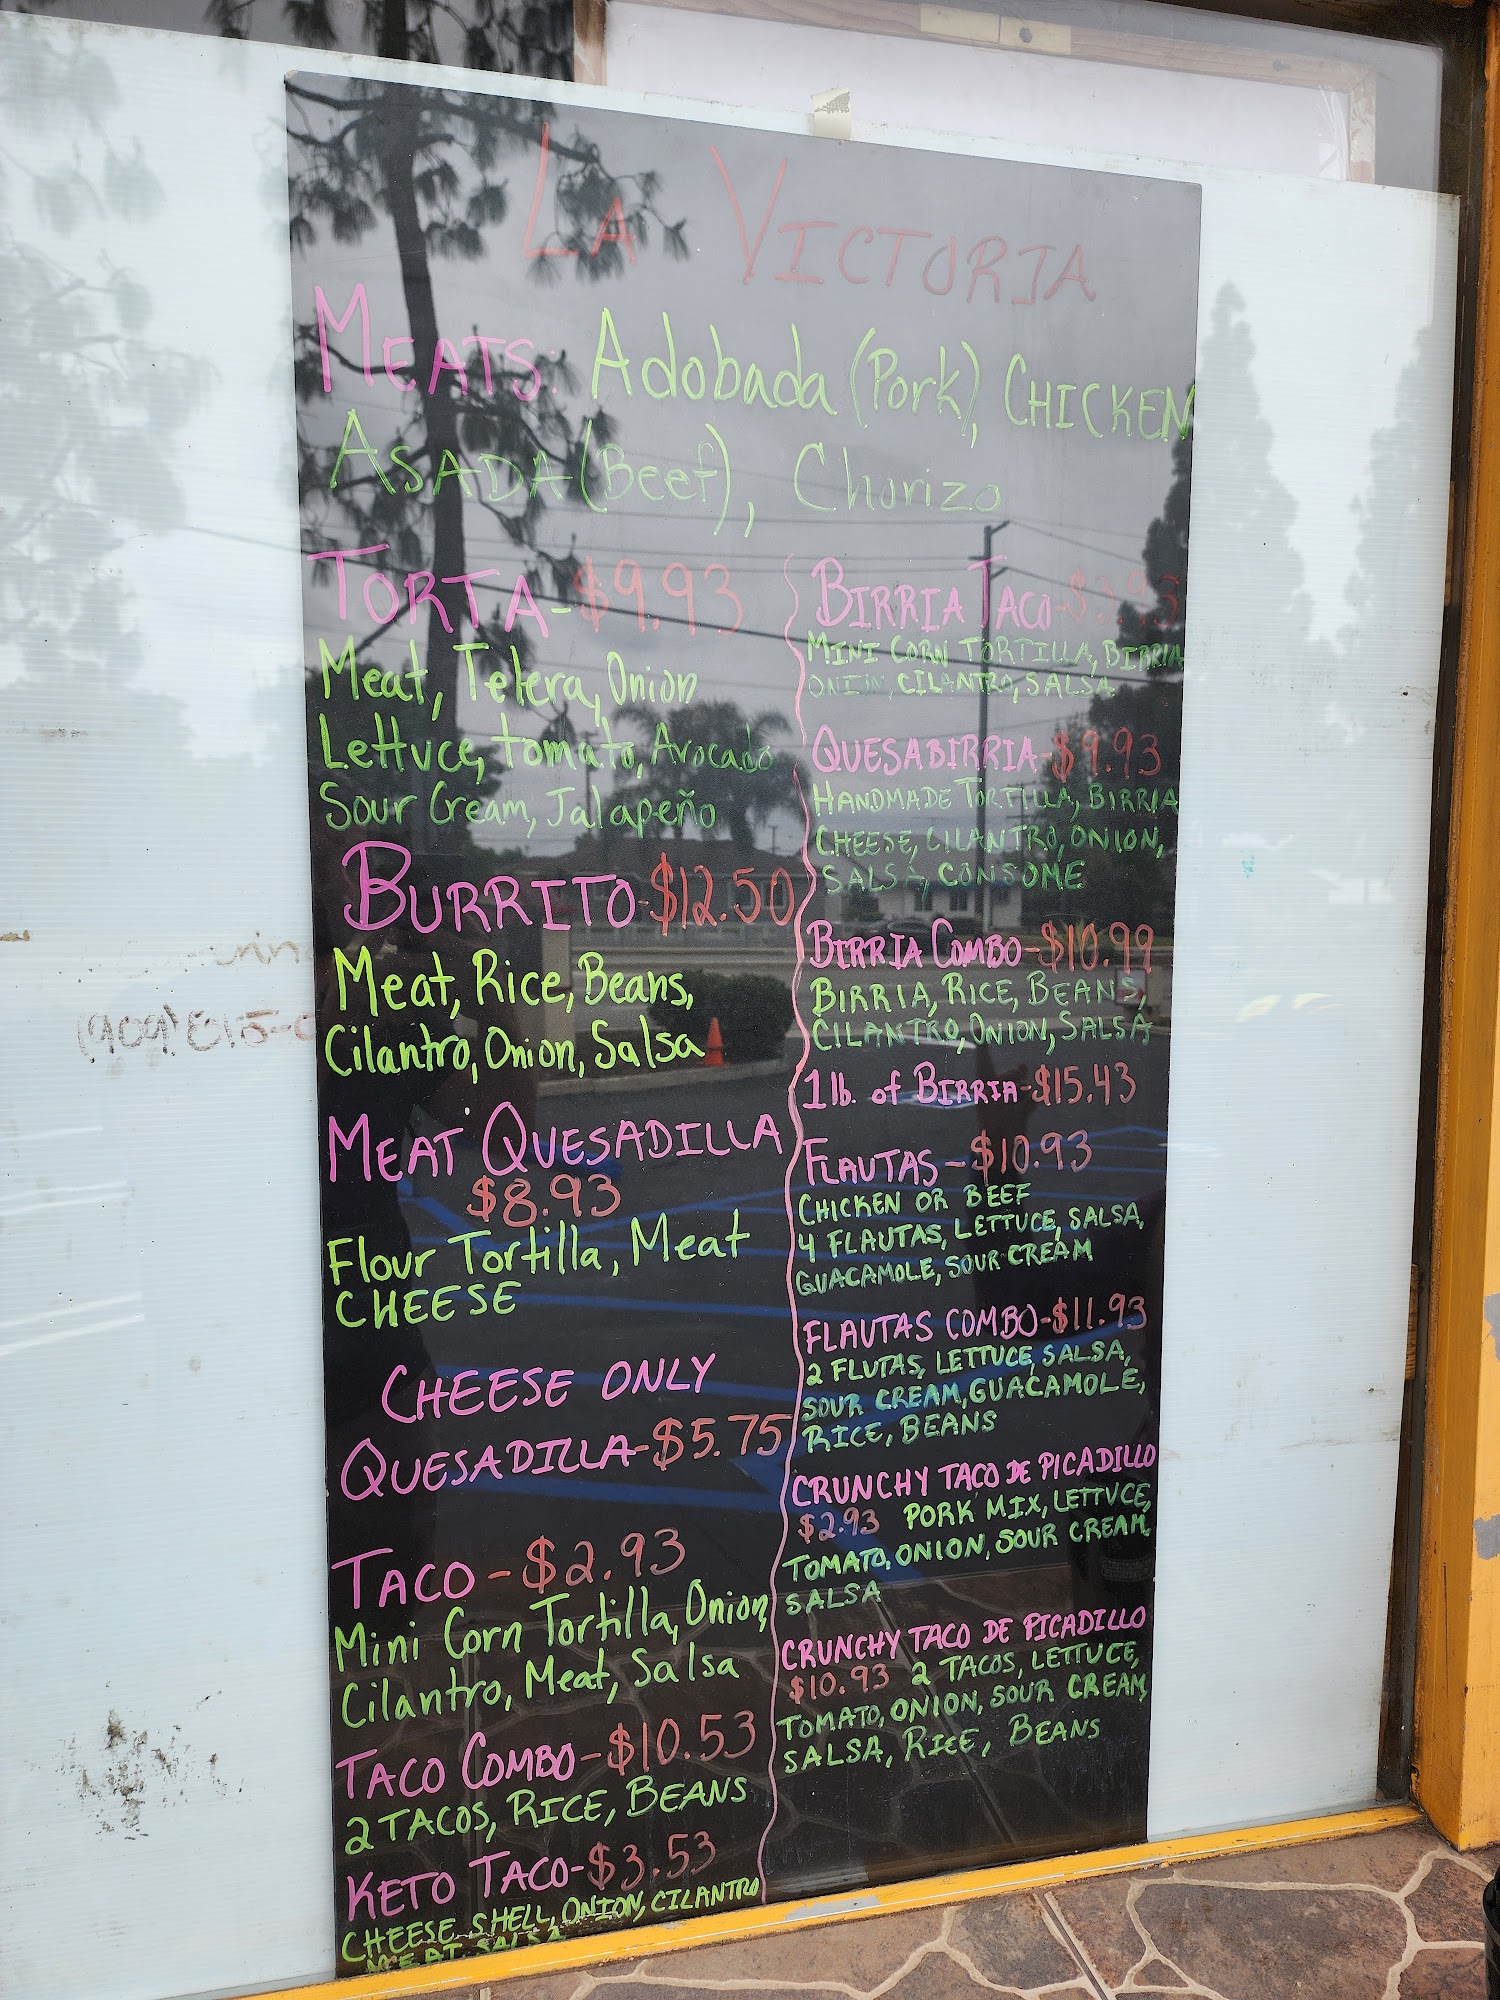 LA VICTORIA
MEATS: Adobada (Pork), CHICKEN
ASADA (Beef), Chorizo
TORTA-$9.93
Meat, Telera, Onion
Lettuce, tomato, Avocado
Sour Cream, Jalapeño
BURRITO-$12.50
Meat, Rice, Beans,
Cilantro, Onion, Salsa
MEAT QUESADILLA
$8.93
Flour Tortilla, Meat
CHEESE
CHEESE ONLY
QUESADILLA-$5.75
TACO-$2.93
Mini Corn Tortilla, Onion,
Cilantro, Meat, Salsa
TACO COMBO-$10.53
2 TACOS, RICE, BEANS
KETO TACO-$3.53
CHEESE SHELL, ONION, CILANTRO
MEAT SALSA
BIRRIA TACO-$3.93
MINI CORN TORTILLA, BIRRIA
ONION, CILANTRO, SALSA
QUESABIRRIA-$9.93
HANDMADE TORTILLA, BIRRIA
CHEESE, CILANTRO, ONION,
SALSA, CONSOME
BIRRIA COMBO-$10.99
BIRRIA, RICE, BEANS,
CILANTRO, ONION, SALSA
1 lb. of BIRRIA-$15.43
FLAUTAS-$10.93
CHICKEN OR BEEF
4 FLAUTAS, LETTUCE, SALSA,
GUACAMOLE, SOUR CREAM
FLAUTAS COMBO-$11.93
2 FLUTAS, LETTUCE, SALSA,
SOUR CREAM, GUACAMOLE,
RICE, BEANS
CRUNCHY TACO DE PICADILLO
$2.93 PORK MIX, LETTUCE,
TOMATO, ONION, SOUR CREAM,
SALSA
CRUNCHY TACO DE PICADILLO
$10.93 2 TACOS, LETTUCE,
TOMATO, ONION, SOUR CREAM,
SALSA, RICE, BEANS